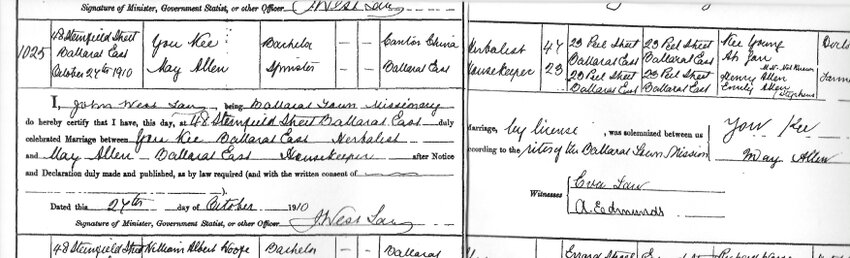 Signature of Minister, Government Statist, or other Officer J. West Law
1025
48 Steinfield Street
Ballarat East
October 27th 1910
You Kee
May Allen
Bachelor
Spinster
— —
— —
Canton China
Ballarat East
I, John West Law, being Ballarat Town Missionary
do hereby certify that I have, this day, at 48 Steinfield Street Ballarat East duly
celebrated Marriage between You Kee Ballarat East Herbalist
and May Allen Ballarat East Housekeeper after Notice
and Declaration duly made and published, as by law required (and with the written consent of
).
Dated this 27th day of October 1910
Signature of Minister, Government Statist, or other Officer J West Law
48 Steinfield Street William Albert Bachelor — — Ballarat
Herbalist
Housekeeper
47
23
23 Peel Street
Ballarat East
23 Peel Street
Ballarat East
23 Peel Street
Ballarat East
23 Peel Street
Ballarat East
Kee Young
Ah Yan
Henry Allen
Emily Allen
Stephens
Marriage, by license, was solemnized between us
according to the rites of the Ballarat Town Mission
You Kee
May Allen
Witnesses
Eva Law
A. Edmunds